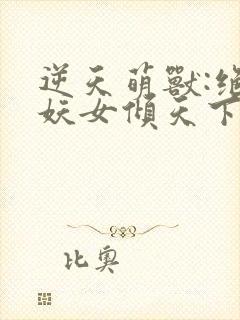 逆天萌獸:絕
妖女傾天下
比奧